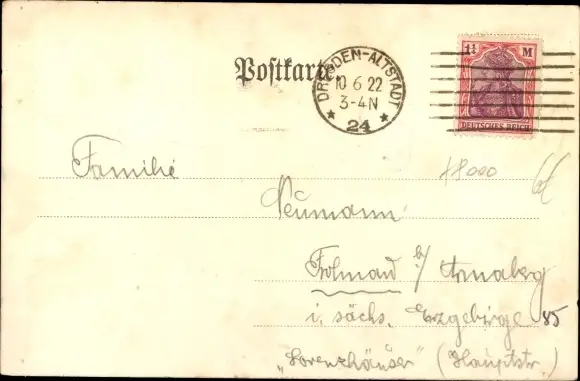 1¼ M
DEUTSCHES REICH
Postkarte
DRESDEN-ALTSTADT
10 6 22
3-4 N
* 24 *
Familie
Neumann
Frohnau b/ Annaberg
i. sächs. Erzgebirge 85
„Lorenzhäuser" (Hauptstr.)